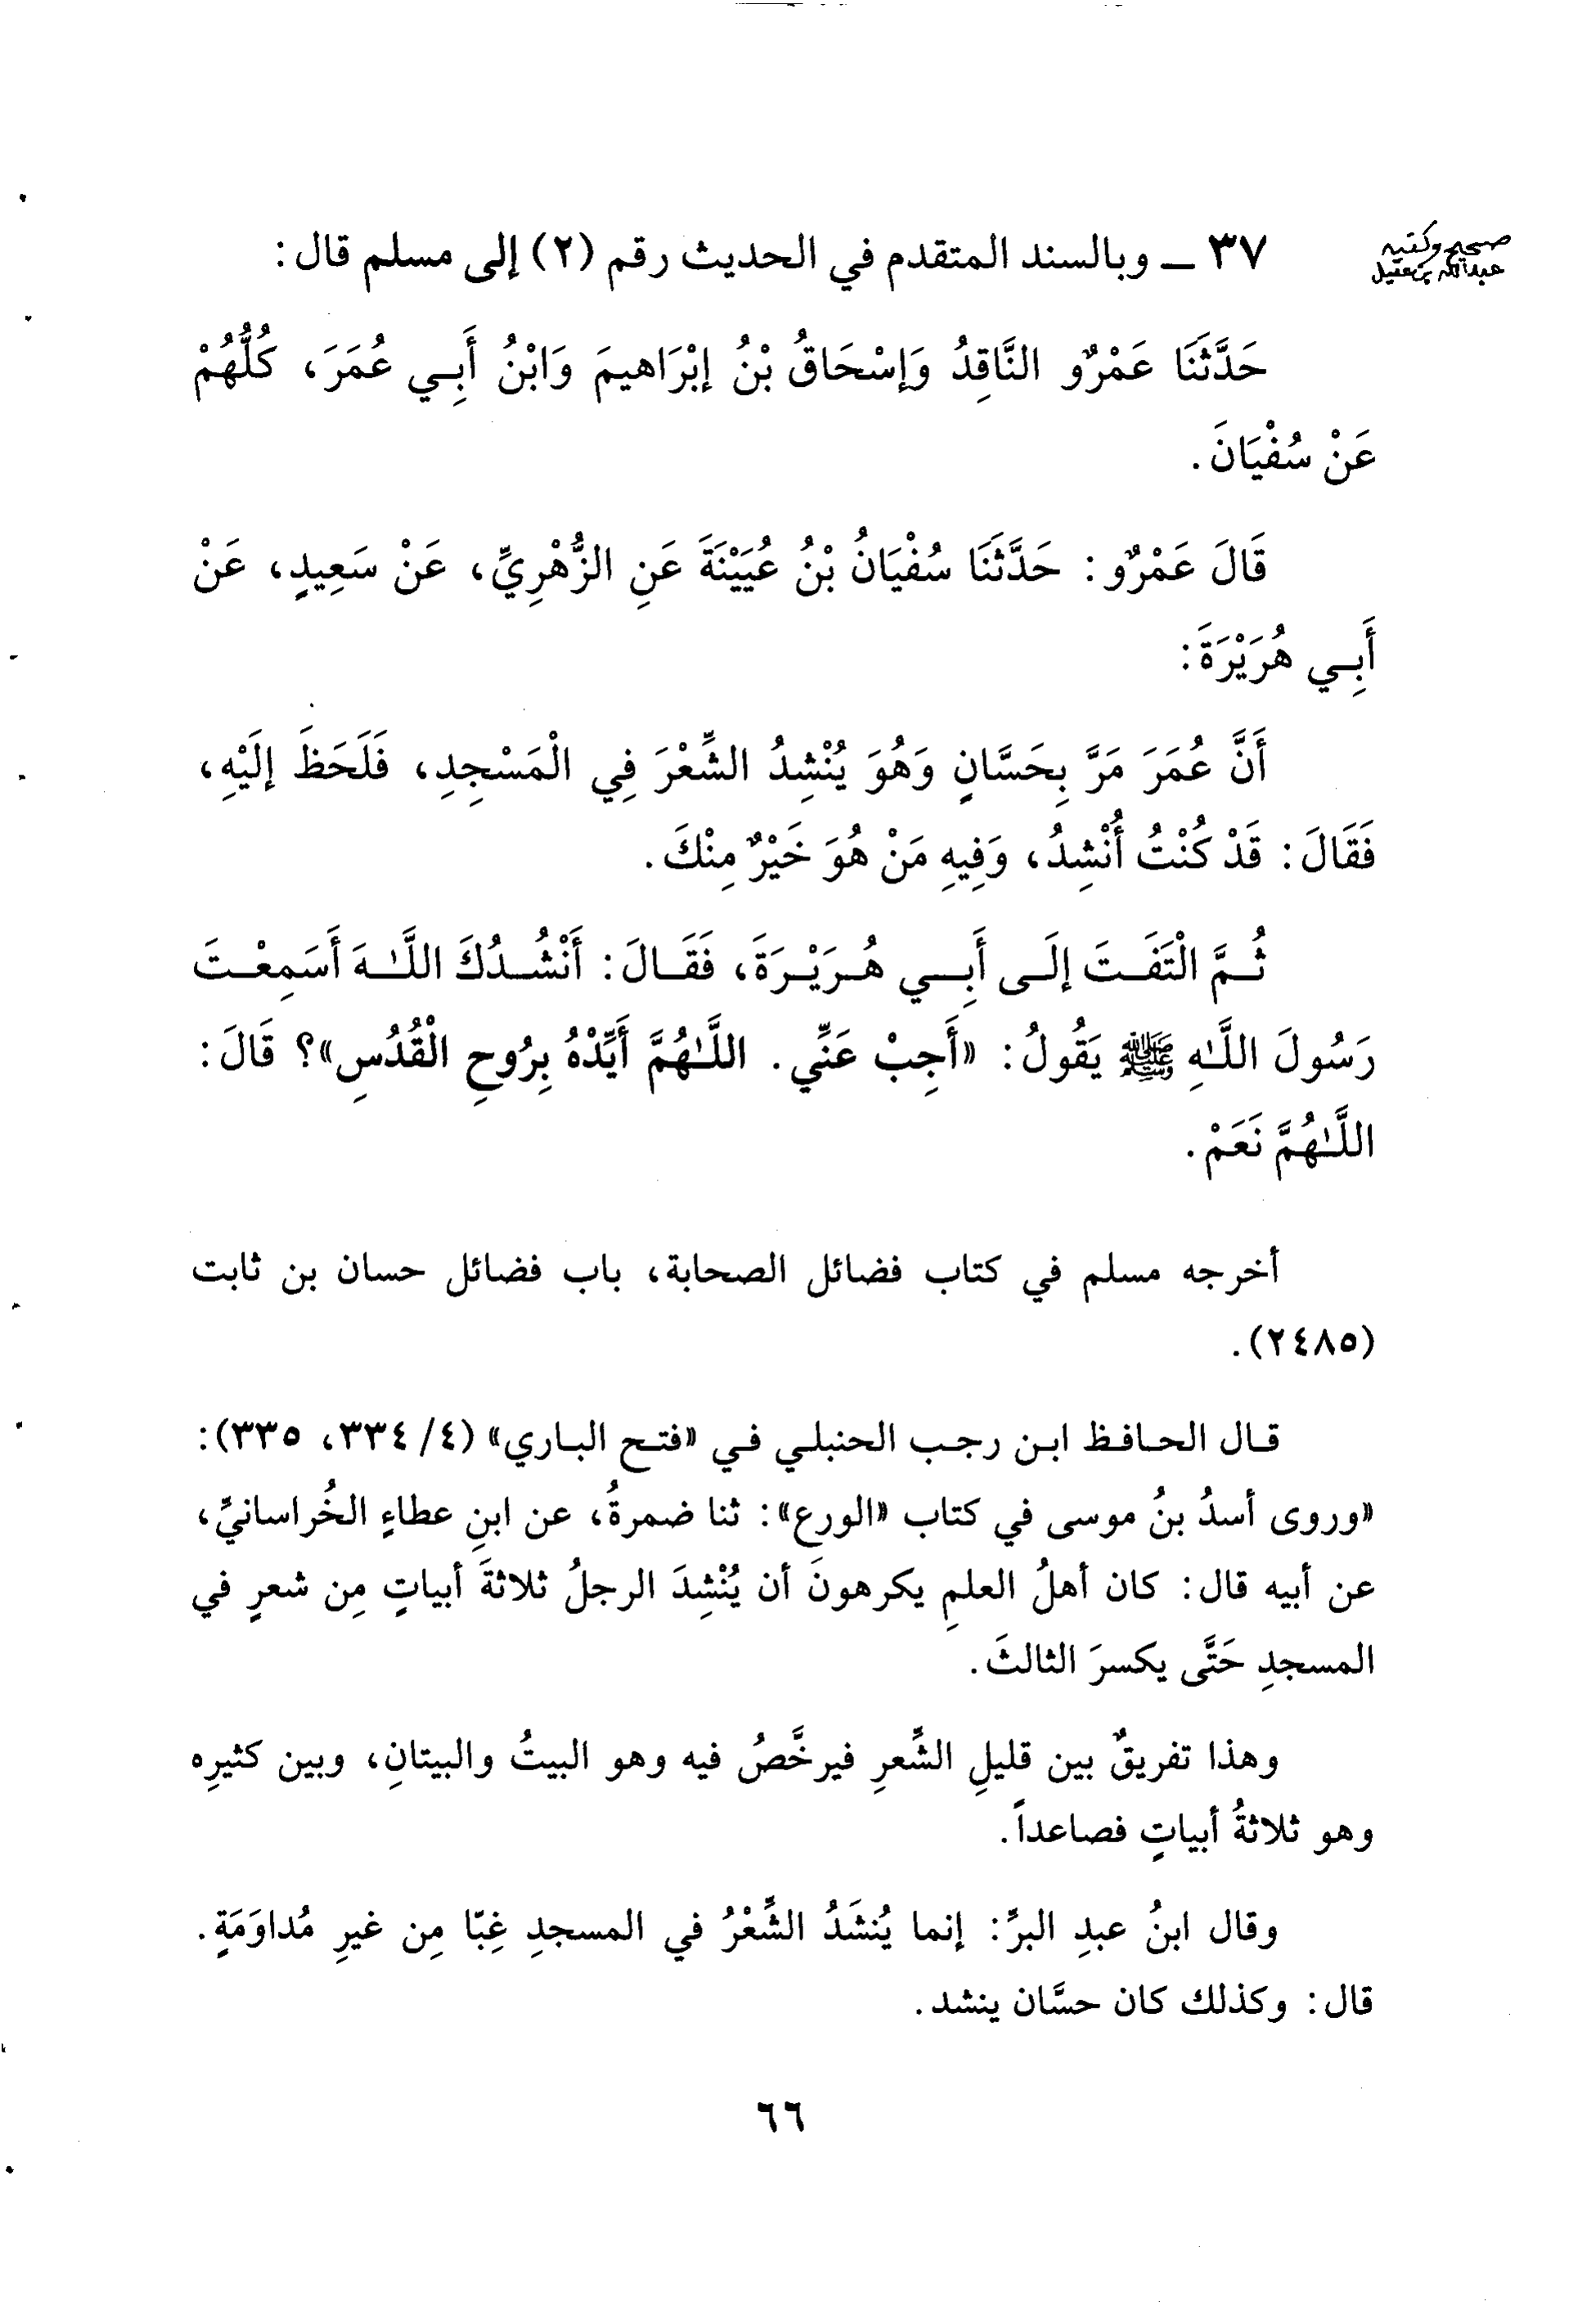 صحيح وكتبه
عبدالله بن عقيل
٣٧ ـ وبالسند المتقدم في الحديث رقم (٢) إلى مسلم قال:
حَدَّثَنَا عَمْرٌو النَّاقِدُ وَإِسْحَاقُ بْنُ إِبْرَاهيمَ وَابْنُ أَبِي عُمَرَ، كُلُّهُمْ
عَنْ سُفْيَانَ.
قَالَ عَمْرٌو: حَدَّثَنَا سُفْيَانُ بْنُ عُيَيْنَةَ عَنِ الزُّهْرِيِّ، عَنْ سَعِيدٍ، عَنْ
أَبِي هُرَيْرَةَ:
أَنَّ عُمَرَ مَرَّ بِحَسَّانٍ وَهُوَ يُنْشِدُ الشِّعْرَ فِي الْمَسْجِدِ، فَلَحَظَ إِلَيْهِ،
فَقَالَ: قَدْ كُنْتُ أُنْشِدُ، وَفِيهِ مَنْ هُوَ خَيْرٌ مِنْكَ.
ثُمَّ الْتَفَتَ إِلَى أَبِي هُرَيْرَةَ، فَقَالَ: أَنْشُدُكَ اللَّهَ أَسَمِعْتَ
رَسُولَ اللَّهِ ﷺ يَقُولُ: «أَجِبْ عَنِّي. اللَّهُمَّ أَيِّدْهُ بِرُوحِ الْقُدُسِ»؟ قَالَ:
اللَّهُمَّ نَعَمْ.
أخرجه مسلم في كتاب فضائل الصحابة، باب فضائل حسان بن ثابت
(٢٤٨٥).
قال الحافظ ابن رجب الحنبلي في «فتح الباري» (٤/ ٣٣٤، ٣٣٥):
«وروى أسدُ بنُ موسى في كتاب «الورع»: ثنا ضمرةُ، عن ابنِ عطاءٍ الخُراسانيِّ،
عن أبيه قال: كان أهلُ العلمِ يكرهونَ أن يُنْشِدَ الرجلُ ثلاثةَ أبياتٍ مِن شعرٍ في
المسجدِ حَتَّى يكسرَ الثالثَ.
وهذا تفريقٌ بين قليلِ الشِّعرِ فيرخَّصُ فيه وهو البيتُ والبيتانِ، وبين كثيرِه
وهو ثلاثةُ أبياتٍ فصاعداً.
وقال ابنُ عبدِ البرِّ: إنما يُنشَدُ الشِّعْرُ في المسجدِ غِبّا مِن غيرِ مُداوَمَةٍ.
قال: وكذلك كان حسَّان ينشد.
٦٦